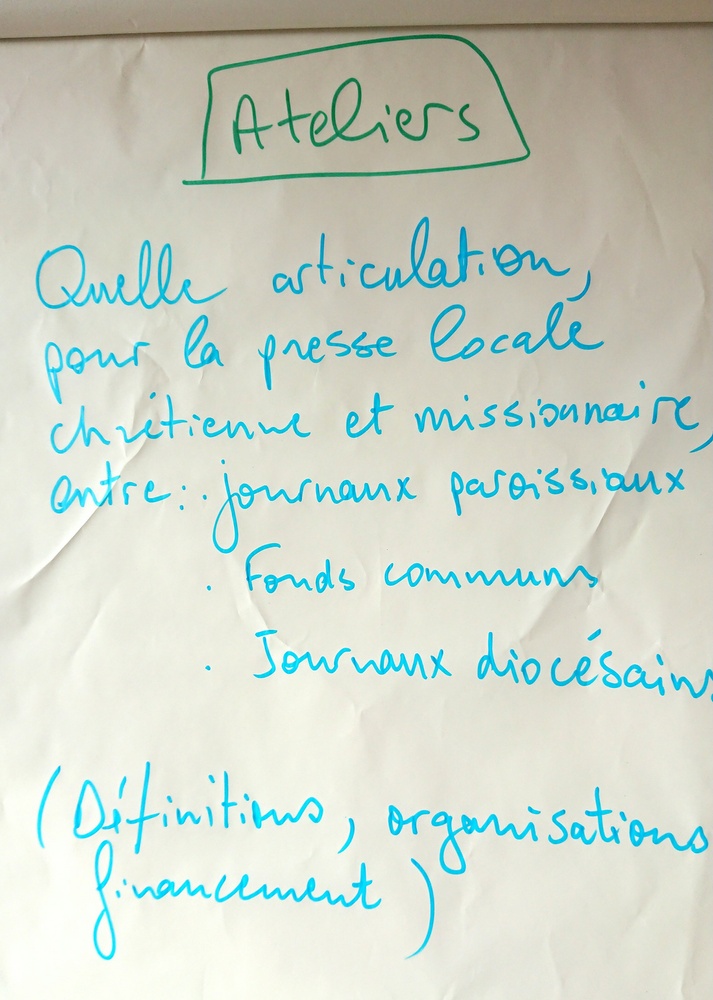 Ateliers
Quelle articulation,
pour la presse locale
chrétienne et missionnaire,
entre: . journaux paroissiaux
. Fonds communs
. Journaux diocésains
(Définitions, organisations
financement)